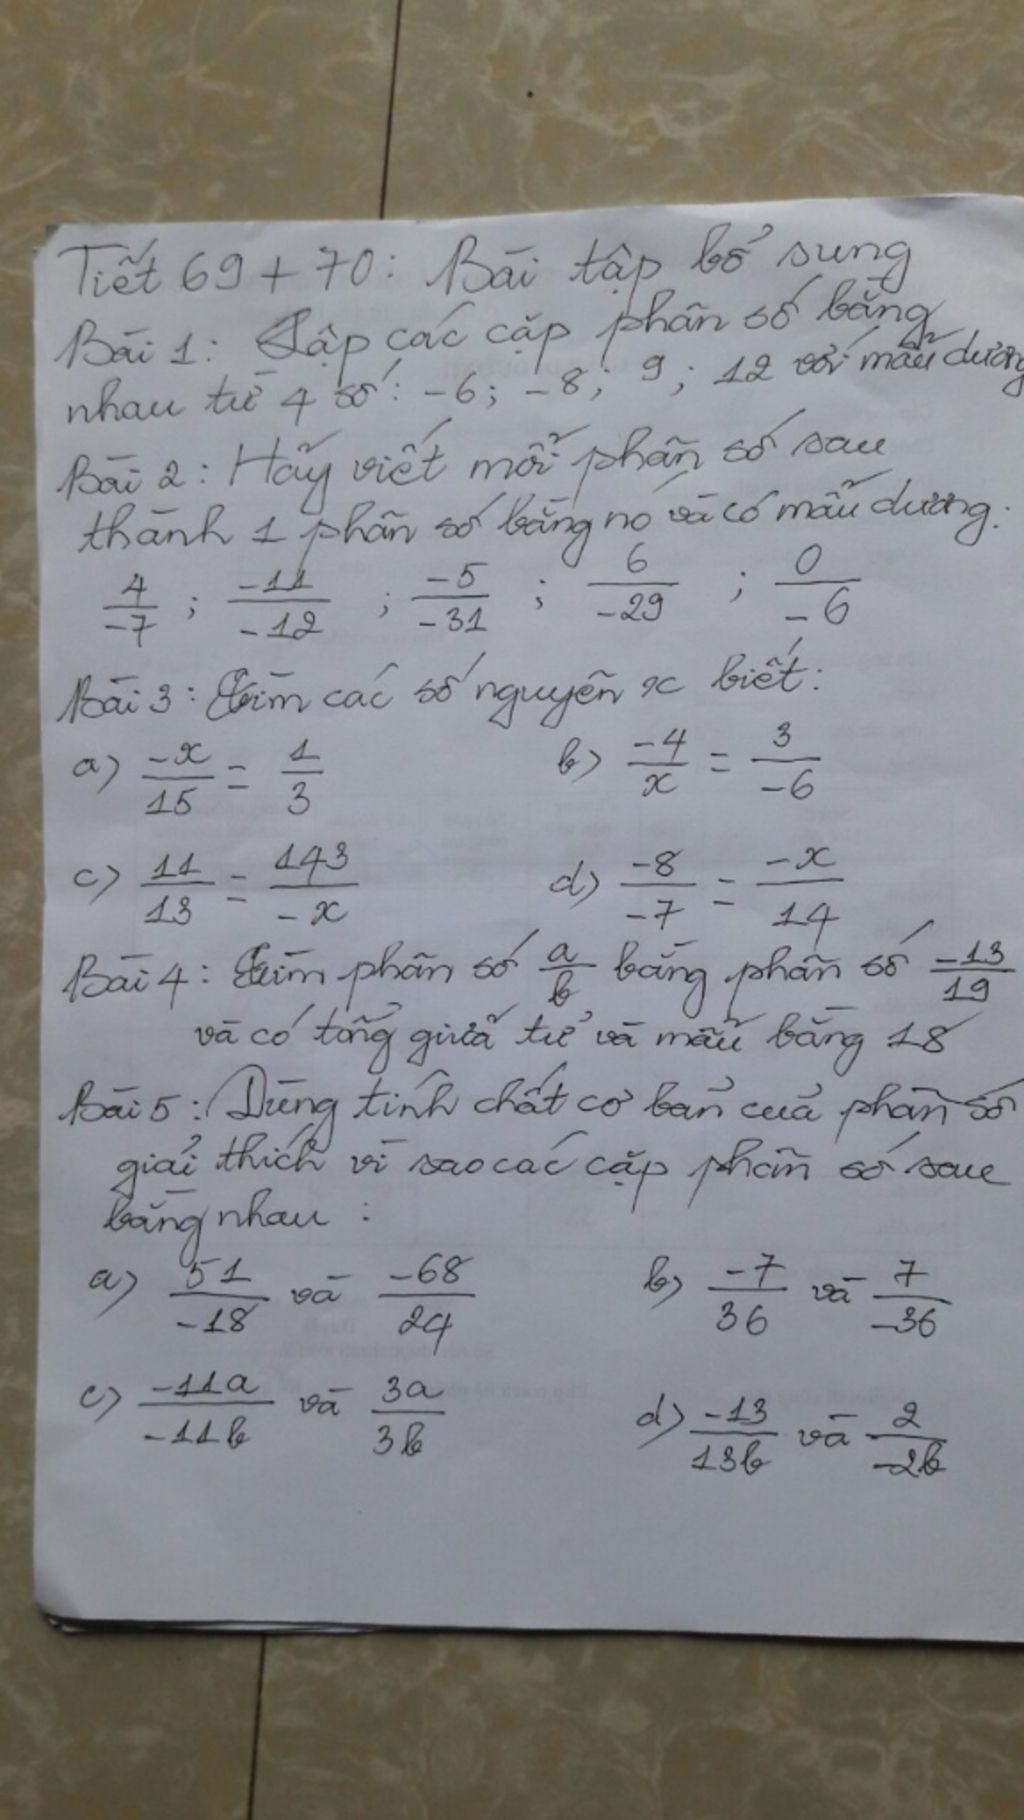 Tiết 69 + 70: Bài tập bổ sung
Bài 1: Lập các cặp phân số bằng
nhau từ 4 số: -6; -8; 9; 12 với mẫu dương
Bài 2: Hãy viết mỗi phân số sau
thành 1 phân số bằng nó và có mẫu dương:
4/-7 ; -11/-12 ; -5/-31 ; 6/-29 ; 0/-6
Bài 3: Tìm các số nguyên x biết:
a) -x/15 = 1/3 b) -4/x = 3/-6
c) 11/13 = 143/-x d) -8/-7 = -x/14
Bài 4: Tìm phân số a/b bằng phân số -13/19
và có tổng giữa tử và mẫu bằng 18
Bài 5: Dùng tính chất cơ bản của phân số
giải thích vì sao các cặp phân số sau
bằng nhau :
a) 51/-18 và -68/24 b) -7/36 và 7/-36
c) -11a/-11b và 3a/3b d) -13/13b và 2/-2b